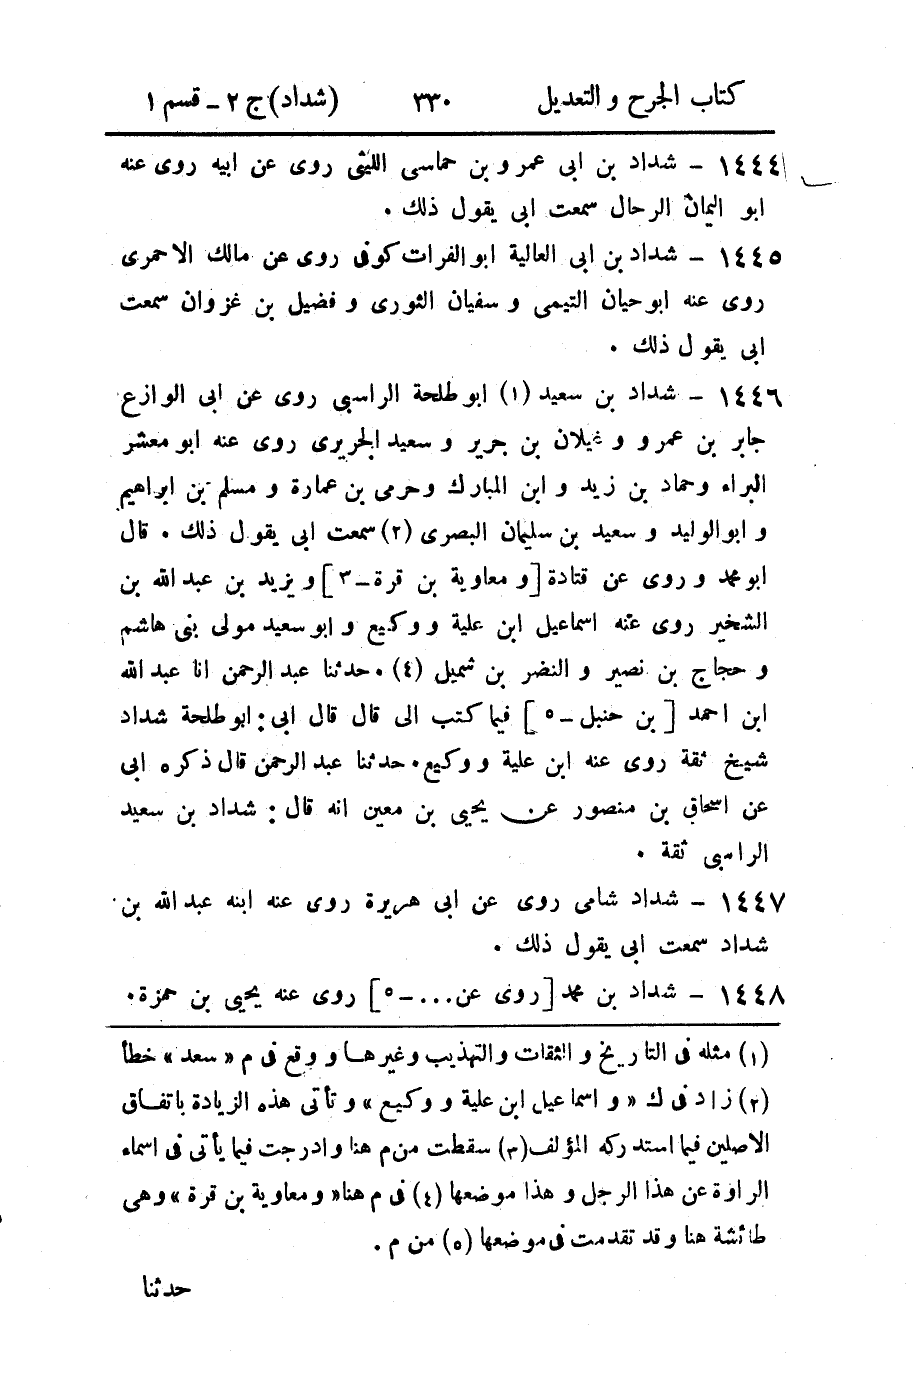 كتاب الجرح و التعديل ٣٣٠ (شداد) ج ٢ - قسم ١
١٤٤٤ - شداد بن ابى عمرو بن حماسى الليثى روى عن ابيه روى عنه
ابو اليمان الرحال سمعت ابى يقول ذلك .
١٤٤٥ - شداد بن ابى العالية ابو الفرات كوفى روى عن مالك الاحمرى
روى عنه ابو حيان التيمى و سفيان الثورى و فضيل بن غزوان سمعت
ابى يقول ذلك .
١٤٤٦ - شداد بن سعيد (١) ابو طلحة الراسبى روى عن ابى الوازع
جابر بن عمرو و غيلان بن جرير و سعيد الجريرى روى عنه ابو معشر
البراء وحماد بن زيد و ابن المبارك وحرمى بن عمارة و مسلم بن ابراهيم
و ابو الوليد و سعيد بن سليمان البصرى (٢) سمعت ابى يقول ذلك . قال
ابو محمد و روى عن قتادة [و معاوية بن قرة - ٣] و يزيد بن عبد الله بن
الشخير روى عنه اسماعيل ابن علية و وكيع و ابو سعيد مولى بنى هاشم
و حجاج بن نصير و النضر بن شميل (٤) . حدثنا عبد الرحمن انا عبد الله
ابن احمد [بن حنبل - ٥] فيما كتب الى قال قال ابى : ابو طلحة شداد
شيخ ثقة روى عنه ابن علية و وكيع . حدثنا عبد الرحمن قال ذكره ابى
عن اسحاق بن منصور عن يحيى بن معين انه قال : شداد بن سعيد
الراسبى ثقة .
١٤٤٧ - شداد شامى روى عن ابى هريرة روى عنه ابنه عبد الله بن
شداد سمعت ابى يقول ذلك .
١٤٤٨ - شداد بن محمد [روى عن... - ٥] روى عنه يحيى بن حمزة .
(١) مثله فى التاريخ و الثقات و التهذيب وغيرها و وقع فى م « سعد » خطأ
(٢) زاد فى ك « و اسماعيل ابن علية و وكيع » و تأتى هذه الزيادة باتفاق
الاصلين فيما استدركه المؤلف (٣) سقطت من م هنا و ادرجت فيما يأتى فى اسماء
الراوة عن هذا الرجل و هذا موضعها (٤) فى م هنا « و معاوية بن قرة » وهى
طائشة هنا و قد تقدمت فى موضعها (٥) من م .
حدثنا